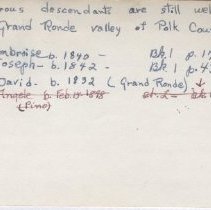 rous descendants are still wel
Grand Ronde valley of Polk Cou
mbroise b. 1840 - Bk. 1 p. 1
Joseph - b. 1842 - Bk 1 p. 4
David - b. 1832 (Grand Ronde)
Angele b. Feb. 15
(Pino)